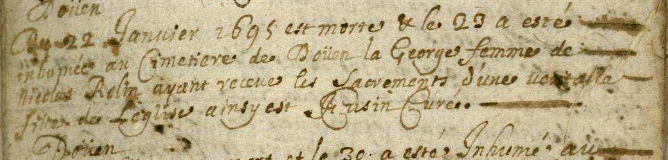 Doüen
Du 22 Janvier 1695 est morte & le 23 a esté
inhumée au Cimetiere de Doüen la George femme de
Nicolas Rolin ayant receue les Sacrements d'une
de Leglise ainsy est Curé.
Doüen
et le 30 a esté Inhumé au